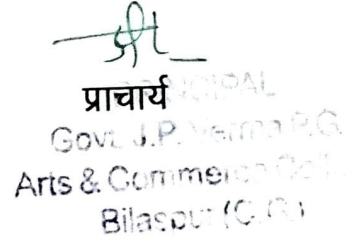 प्राचार्य
PRINCIPAL
Govt. J.P. Verma P.G.
Arts & Commerce Coll.
Bilaspur (C.G.)